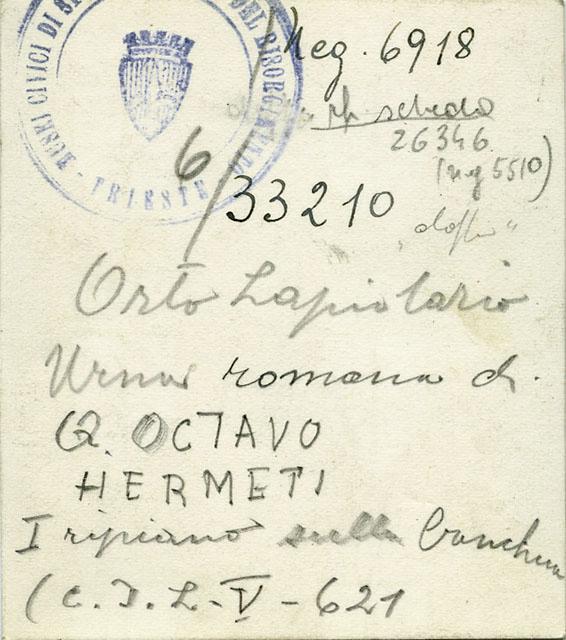 MUSEI CIVICI DI DEL RISORGIMENTO
- TRIESTE
Neg. 6918
rip scheda
26346
(neg 5510)
6/33210
"doppio"
Orto Lapidario
Urna romana di
Q. OCTAVO
HERMETI
I ripiano sulla banchina
(C.I.L. V - 621